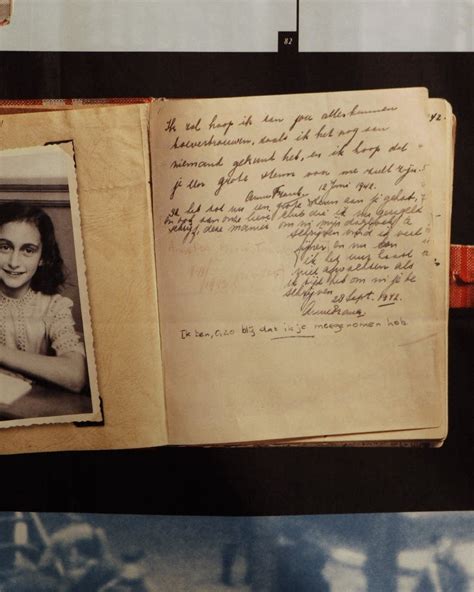 82
42.
Ik zal hoop ik aan jou alles kunnen
toevertrouwen, zoals ik het nog aan
niemand gekund heb, en ik hoop dat
je een grote steun voor me zult zijn.
Anne Frank. 12 Juni 1942.
Ik heb tot nu een grote steun aan je gehad,
en ook aan onze lieve club die ik nu geregeld
schrijf, deze manier om in mijn dagboek te
schrijven vind ik veel
fijner en nu kan
ik het uur haast
niet afwachten als
ik tijd heb om in je te
schrijven
28 Sept. 1942.
Anne Frank
Ik ben, O, zo blij dat ik je meegenomen heb